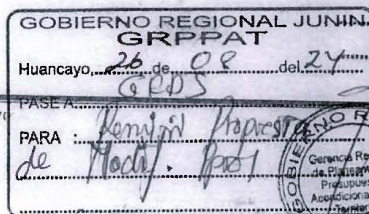 GOBIERNO REGIONAL JUNIN
GRPPAT
Huancayo, 26 de 08 del 24
GRDS
PASE A
PARA : Remitir Propuesta
de Modif.
GOBIERNO R
Gerencia Re
de Planeam
Presupues
Acondiciona
Territor